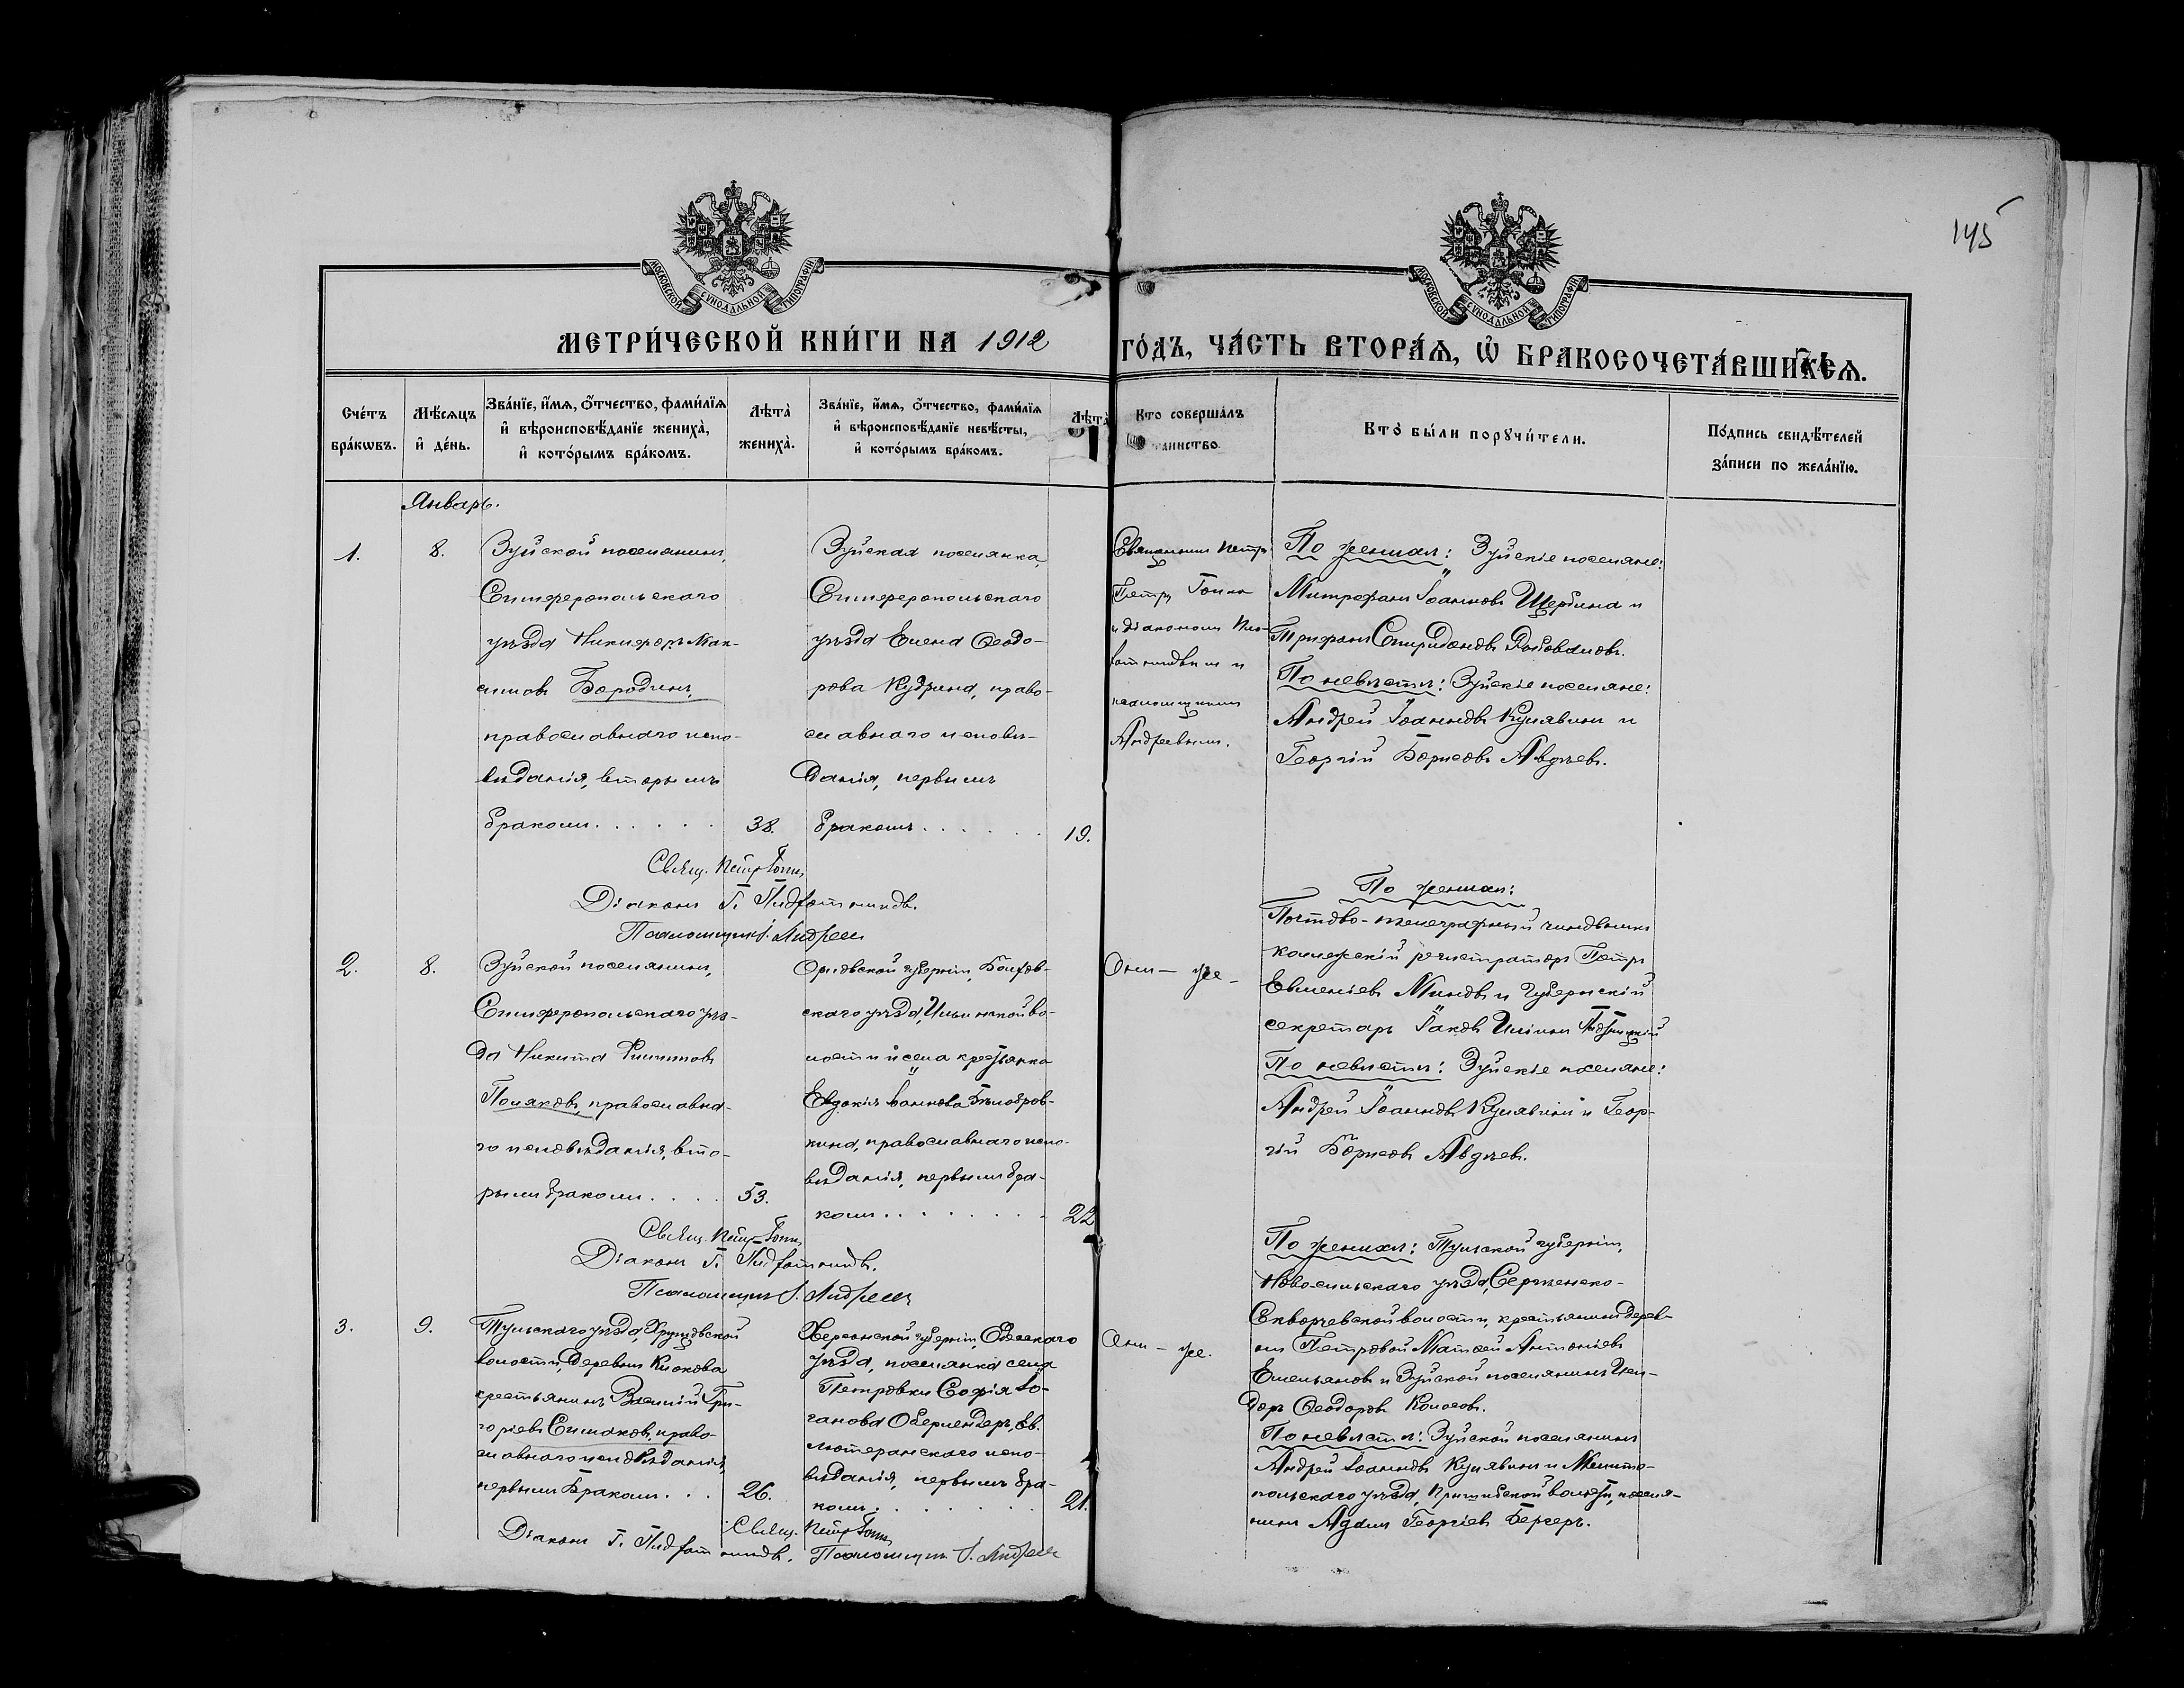 145
МОСКОВСКОЙ СѴНОДАЛЬНОЙ ТИПОГРАФІИ
МОСКОВСКОЙ СѴНОДАЛЬНОЙ ТИПОГРАФІИ
МЕТРИ́ЧЕСКОЙ КНИ́ГИ НА 1912 ГО́ДЪ, ЧА́СТЬ ВТОРА́Ѧ, Ѽ БРАКОСОЧЕТА́ВШИХСЯ.
Сче́тъ бра́кѡвъ.
Мѣ́сяцъ и҆ де́нь.
Зва́нїе, и҆́мѧ, ѻ҆́тчество, фами́лїѧ
и҆ вѣроисповѣ́данїе жениха̀,
и҆ кото́рымъ бра́комъ.
Лѣта̀ жениха̀.
Зва́нїе, и҆́мѧ, ѻ҆́тчество, фами́лїѧ
и҆ вѣроисповѣ́данїе невѣ́сты,
и҆ кото́рымъ бра́комъ.
Лѣта̀
Кто соверша́лъ
таинство
Кто̀ бы́ли порꙋчи́тели.
По́дпись свидѣ́телей
за́писи по жела́нїю.
Январь.
1.
8.
Зуйской поселянинъ,
Симферопольскаго
уѣзда Никифоръ Мак-
симовъ Бородинъ,
православнаго испо-
вѣданія, вторымъ
бракомъ . . . . . .
38.
Зуйская поселянка,
Симферопольскаго
уѣзда Елена Ѳеодо-
рова Кудрина, право-
славнаго исповѣ-
данія, первымъ
бракомъ . . . . . .
19.
Священникъ Петръ
Петръ Гоинъ
и діакономъ
и
псаломщикомъ
Андреевымъ.
По женихѣ: Зуйскіе поселяне:
Митрофанъ Іоанновъ Щербина и
Трифонъ Спиридоновъ
По невѣстѣ: Зуйскіе поселяне:
Андрей Іоанновъ Кулявинъ и
Георгій Борисовъ Авдѣевъ.
Свящ. Петръ Гоинъ
Діаконъ Г.
Псаломщикъ І. Андреевъ
2.
8.
Зуйской поселянинъ,
Симферопольскаго уѣз-
да Никита Филипповъ
Поляковъ, православна-
го исповѣданія, вто-
рымъ бракомъ . . . .
53.
Орловской губерніи, Болхов-
скаго уѣзда, Ильинской во-
лости и села крестьянка
Евдокія Іоаннова Бѣлобров-
кина, православнаго испо-
вѣданія, первымъ бра-
комъ . . . . . . .
22
Они – же –
По женихѣ:
Почтово-телеграфный чиновникъ
коллежскій регистраторъ Петръ
Евменіевъ Миновъ и Губернскій
секретарь Іаковъ Иліинъ
По невѣстѣ: Зуйскіе поселяне:
Андрей Іоанновъ Кулявинъ и Геор-
гій Борисовъ Авдѣевъ.
Свящ. Петръ Гоинъ
Діаконъ Г.
Псаломщикъ І. Андреевъ
3.
9.
Тульскаго уѣзда, Хрущовской
волости, деревни Клокова
крестьянинъ Василій Гри-
горіевъ Симаковъ, право-
славнаго исповѣданія,
первымъ бракомъ . . .
26.
Херсонской губерніи, Одесскаго
уѣзда, поселянка села
Петровки Софія Іо-
ганова Оберлендеръ, Ев.
лютеранскаго испо-
вѣданія, первымъ бра-
комъ . . . . . . .
21.
Они – же.
По женихѣ: Тульской губерніи,
Ново-сильскаго уѣзда,
Скворчевской волости, крестьянинъ дерев-
ни Петровой Матѳей Антоніевъ
Емельяновъ и Зуйской поселянинъ Иси-
доръ Ѳеодоровъ Колосовъ.
По невѣстѣ: Зуйской поселянинъ
Андрей Іоанновъ Кулявинъ и Мелито-
польскаго уѣзда, Пришибской волости, поселя-
нинъ Адамъ Георгіевъ Бергеръ.
Свящ. Петръ Гоинъ
Діаконъ Г.
Псаломщикъ І. Андреевъ